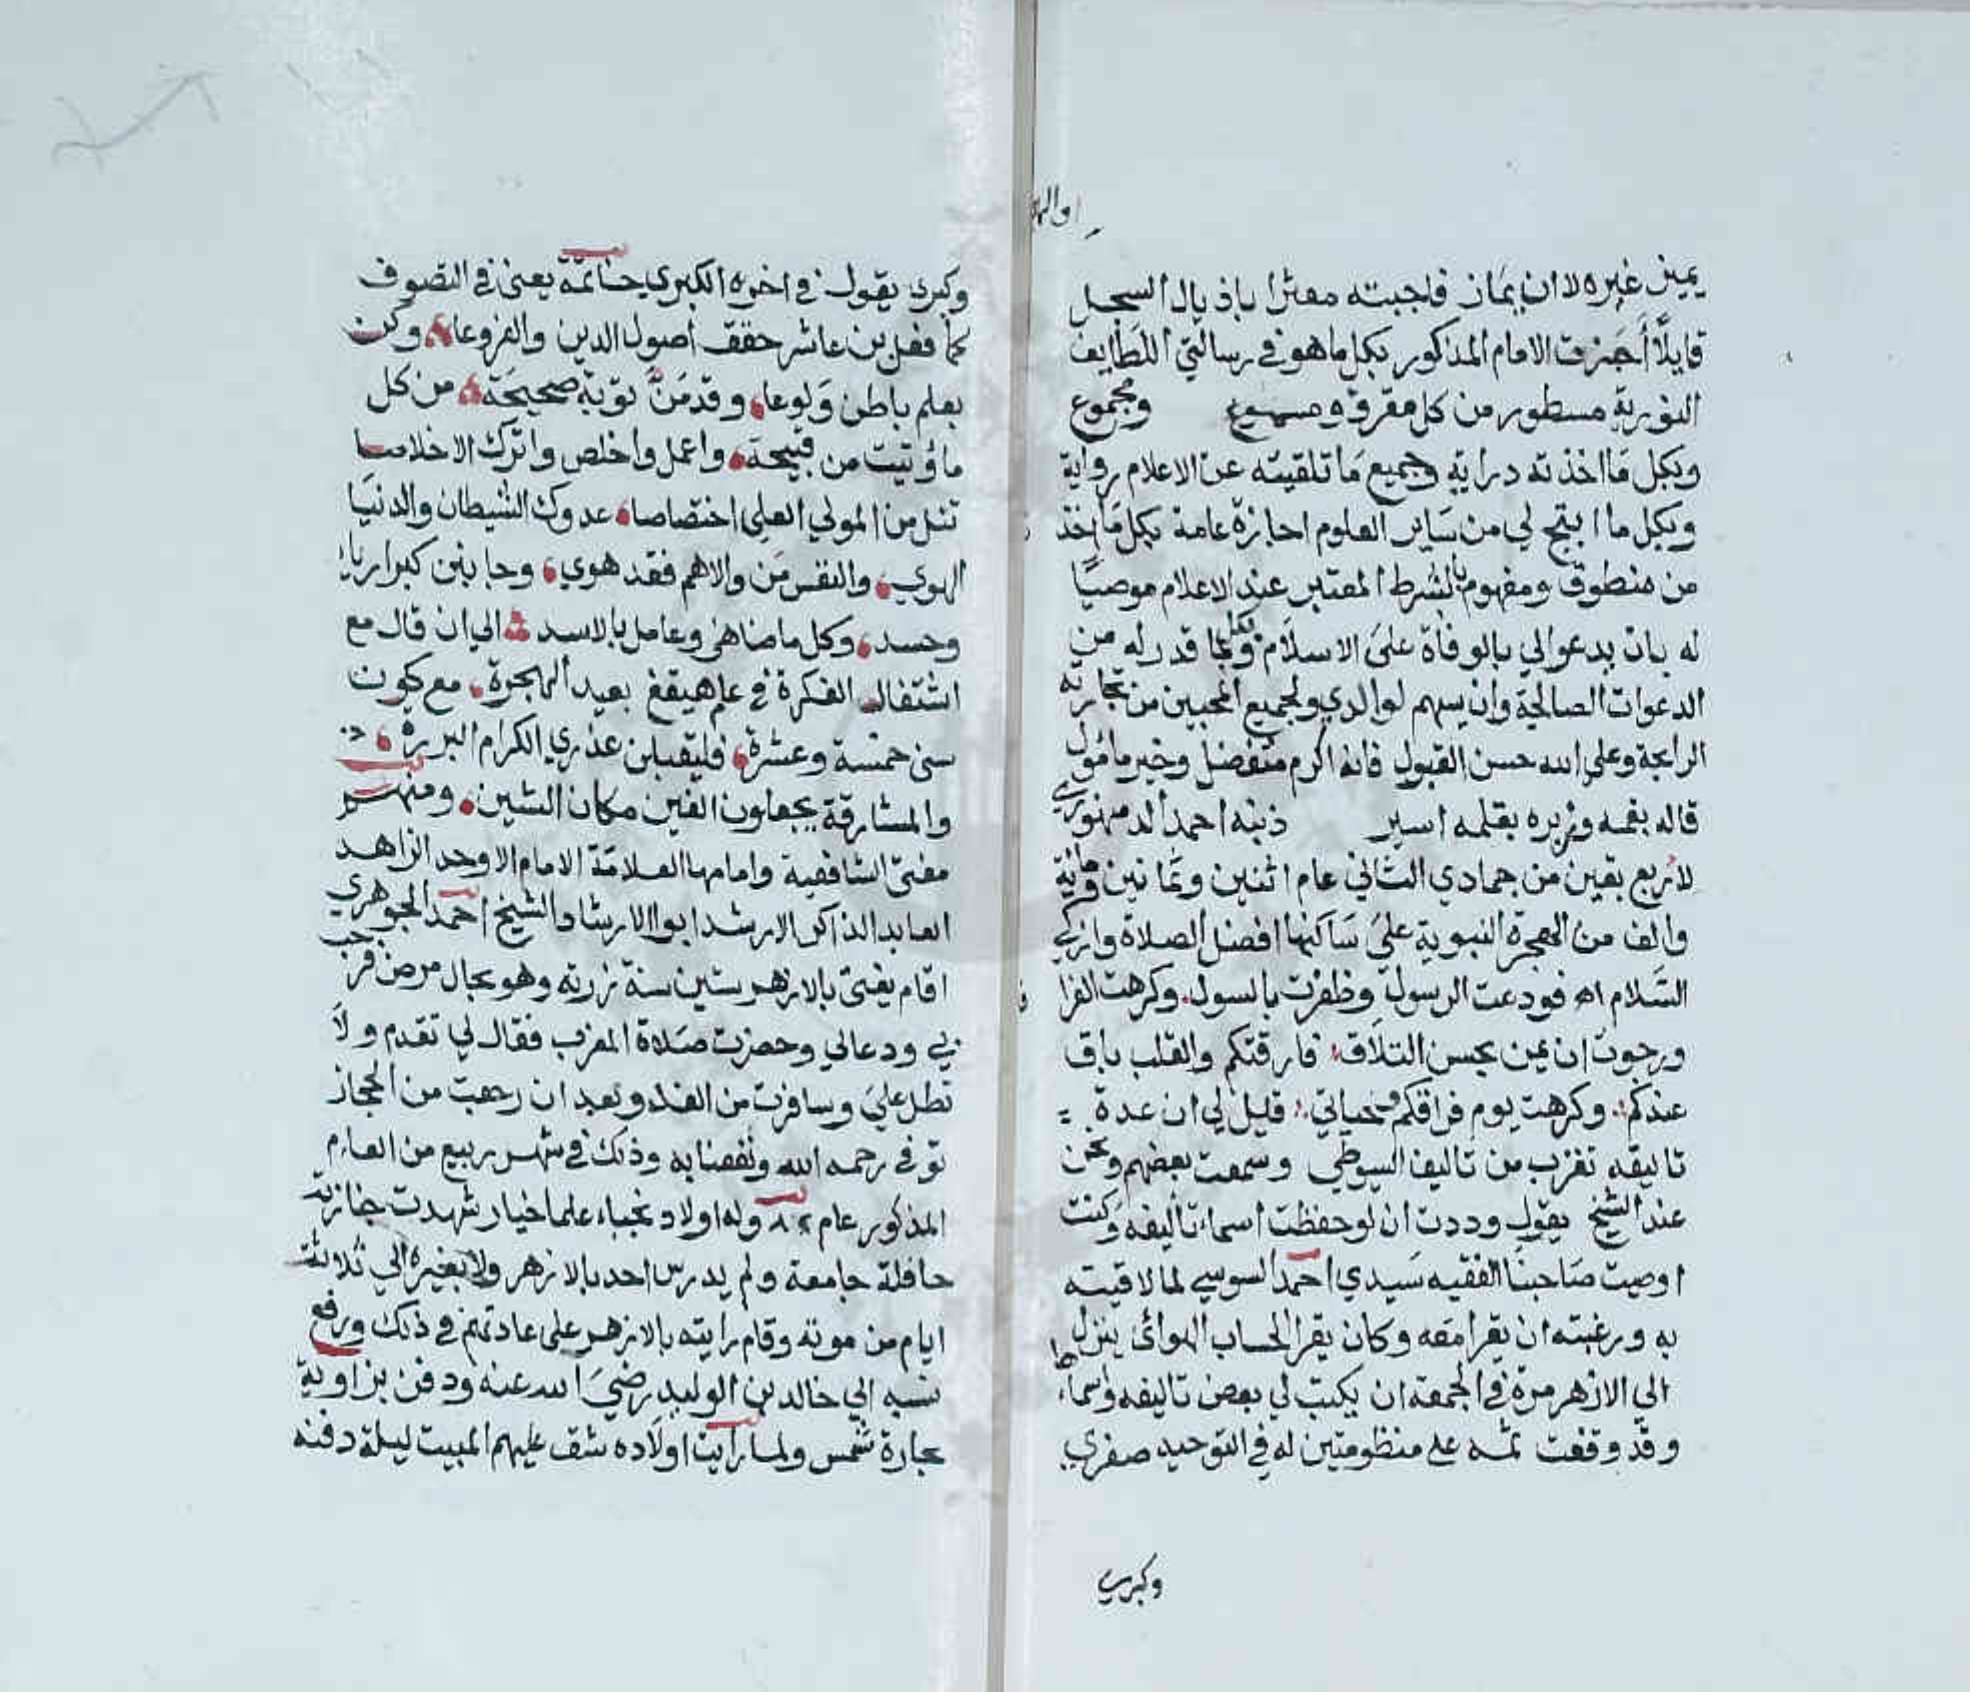 يمين غيره لا ان يمان فاجبته معثرا باذيال السجل
قايلًا أجزت الامام المذكور بكل ما هو في رسالتي اللطايف
النورية مسطور من كل مقروء ومسموع ومجموع
وبكل ما اخذته دراية وجميع ما تلقيته عن الاعلام رواية
وبكل ما ابتج لي من ساير العلوم اجازة عامة بكل ما اخذ
من منطوق ومفهوم بالشرط المعتبر عند الاعلام موصيًا
له بان يدعو لي بالوفاة على الاسلام وبكل ما قدر له من
الدعوات الصالحة وان يسهم لوالدي ولجميع المحبين من تجارته
الرابحة وعلى الله حسن القبول فانه اكرم متفضل وخير مامول
قاله بفمه وزبره بقلمه اسير ذنبه احمد الدمنهوري
لأربع بقين من جمادي الثاني عام اثنين وثمانين وماية
والف من الهجرة النبوية على ساكنها افضل الصلاة وازكى
السلام اه فودعت الرسول وظفرت بالسول. وكرهت الفرا
ورجوت ان يمن بحسن التلاق؛ فارقتكم والقلب باق
عندكم؛ وكرهت يوم فراقكم محياتي؛ قليل لي ان عدة
تاليفه تقرب من تاليف السيوطي وسمعت بعضهم ونحن
عند الشيخ يقول وددت ان لو حفظت اسماء تاليفه وكنت
اوصيت صاحبنا الفقيه سيدي احمد السوسي لما لاقيته
به ورغبته ان يقرا معه وكان يقرا الحساب الهوائى ينزل
الى الازهر مرة في الجمعة ان يكتب لي بعض تاليفه واسماء
وقد وقفت ثمه على منظومتين له في التوحيد صغري
وكبري
وكبرى يقول في اخره الكبري خاتمة يعنى في التصوف
كما فعل بن عاشر حقق اصول الدين والفروعا وكن
بعلم باطن ولوعا وقدمن توبة صحيحة من كل
ما اوتيت من قبيحة واعمل واخلص واترك الاخلاصا
تنل من المولي العلي اختصاصا عدوك الشيطان والدنيا
الهوي والنفس من والاهم فقد هوي وجانبن كبرا ريا
وحسد وكل ما ضاهى وعامل بالاسد الي ان قال مع
اشتغال الفكرة في عام هيقغ بعيد الهجرة مع كون
سنى خمسة وعشرة فليقبلن عذري الكرام البررة
والمشارقة يجعلون الغين مكان الشين ومنهم
مفتى الشافعية وامامها العلامة الامام الاوحد الزاهد
العابد الذاكر الارشد ابو الارشاد الشيخ احمد الجوهري
اقام يفتى بالازهر ستين سنة زرته وهو بحال مرض فرحب
بي ودعالي وحضرت صلاة المغرب فقال لي تقدم ولا
تطل علي وسافرت من الغد وبعد ان رجعت من الحجاز
توفي رحمه الله ونفعنا به وذلك في شهر ربيع من العام
المذكور عام ٨٢ وله اولاد نجباء علما خيار شهدت جنازته
حافلة جامعة ولم يدرس احد بالازهر ولا بغيره الي ثلاثة
ايام من موته وقام رايته بالازهر على عادتهم في ذلك ورفع
نسبه الي خالد بن الوليد رضي الله عنه ودفن بزاوية
بحارة شمس ولما رايت اولاده شق عليهم المبيت ليلة دفنه